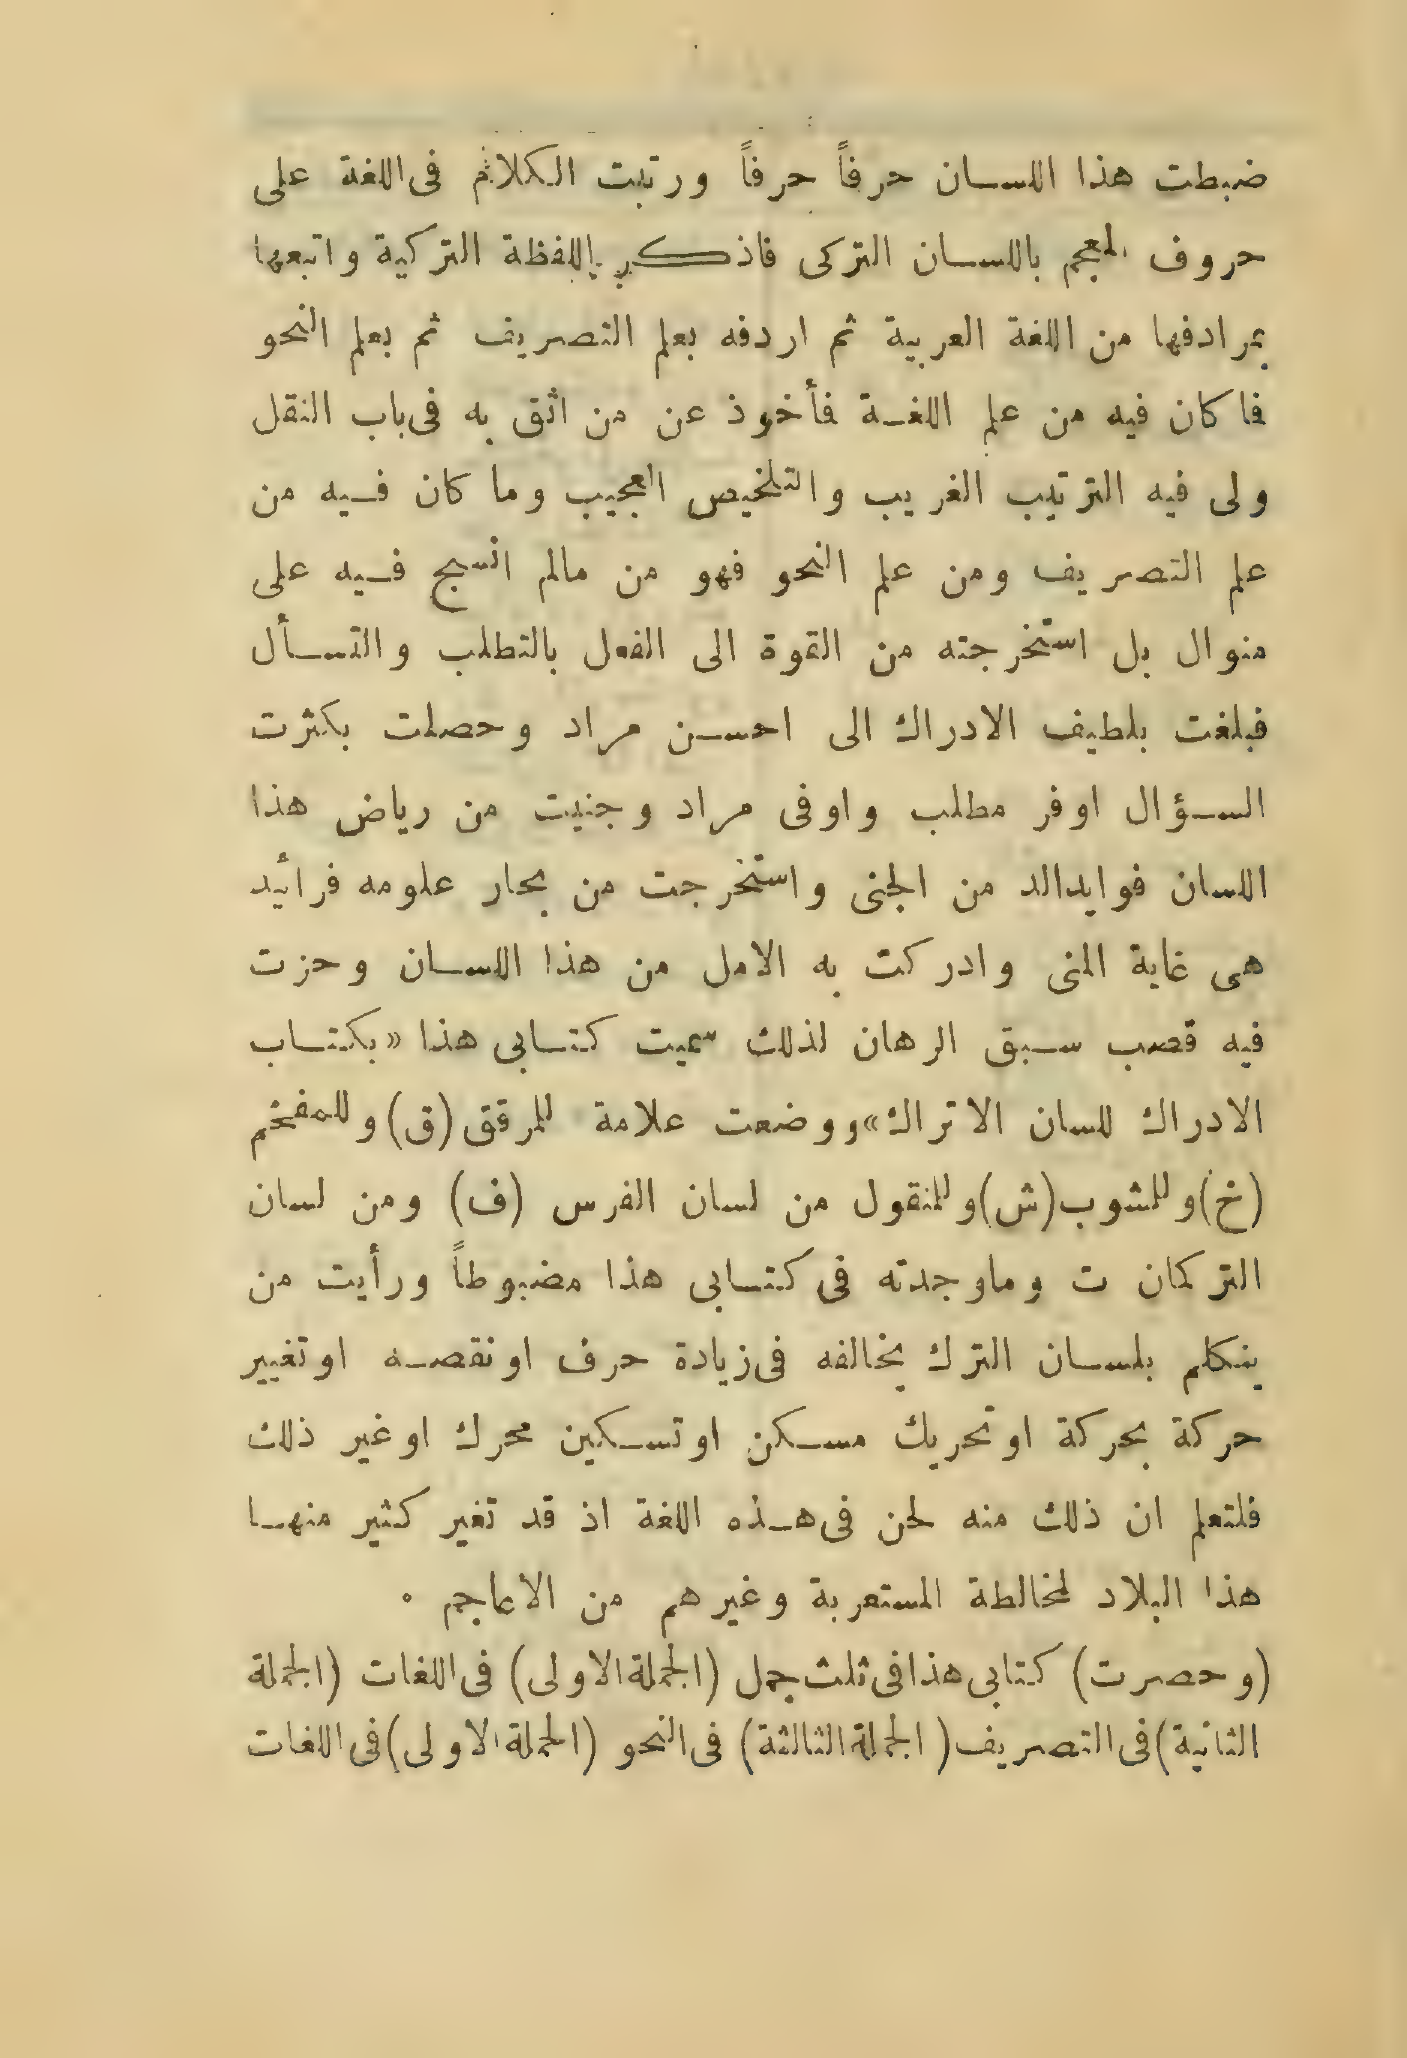 ضبطت هذا اللسان حرفاً حرفاً ورتبت الكلام فى اللغة على
حروف المعجم باللسان التركى فاذكر اللفظة التركية واتبعها
بمرادفها من اللغة العربية ثم اردفه بعلم التصريف ثم بعلم النحو
فاكان فيه من علم اللغة فأخوذ عن من اثق به فى باب النقل
ولى فيه الترتيب الغريب والتلخيص العجيب وما كان فيه من
علم التصريف ومن علم النحو فهو من مالم انسج فيه على
منوال بل استخرجته من القوة الى الفعل بالتطلب والتسأل
فبلغت بلطيف الادراك الى احسن مراد وحصلت بكثرت
السؤال اوفر مطلب واوفى مراد وجنيت من رياض هذا
اللسان فوايدالد من الجنى واستخرجت من بحار علومه فرأيد
هى غاية المنى وادركت به الامل من هذا اللسان وحزت
فيه قصب سبق الرهان لذلك سميت كتابى هذا «بكتاب
الادراك للسان الاتراك» ووضعت علامة للمرقق (ق) وللمفخم
(خ) وللمشوب (ش) وللمنقول من لسان الفرس (ف) ومن لسان
التركمان ت وماوجدته فى كتابى هذا مضبوطاً ورأيت من
يتكلم بلسان الترك يخالفه فى زيادة حرف اونقصه اوتغيير
حركة بحركة اوتحريك مسكن اوتسكين محرك اوغير ذلك
فلتعلم ان ذلك منه لحن فى هذه اللغة اذ قد تغير كثير منها
هذا البلاد لمخالطة المستعربة وغيرهم من الاعاجم .
(وحصرت) كتابى هذا فى ثلث جمل (الجملة الاولى) فى اللغات (الجملة
الثانية) فى التصريف (الجملة الثالثة) فى النحو (الجملة الاولى) فى اللغات